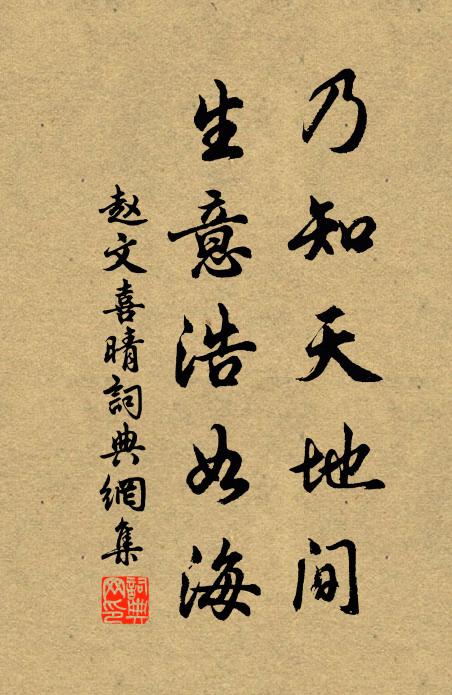 乃知天地间
生意浩如海
赵文喜晴詞典網集
詞典网印